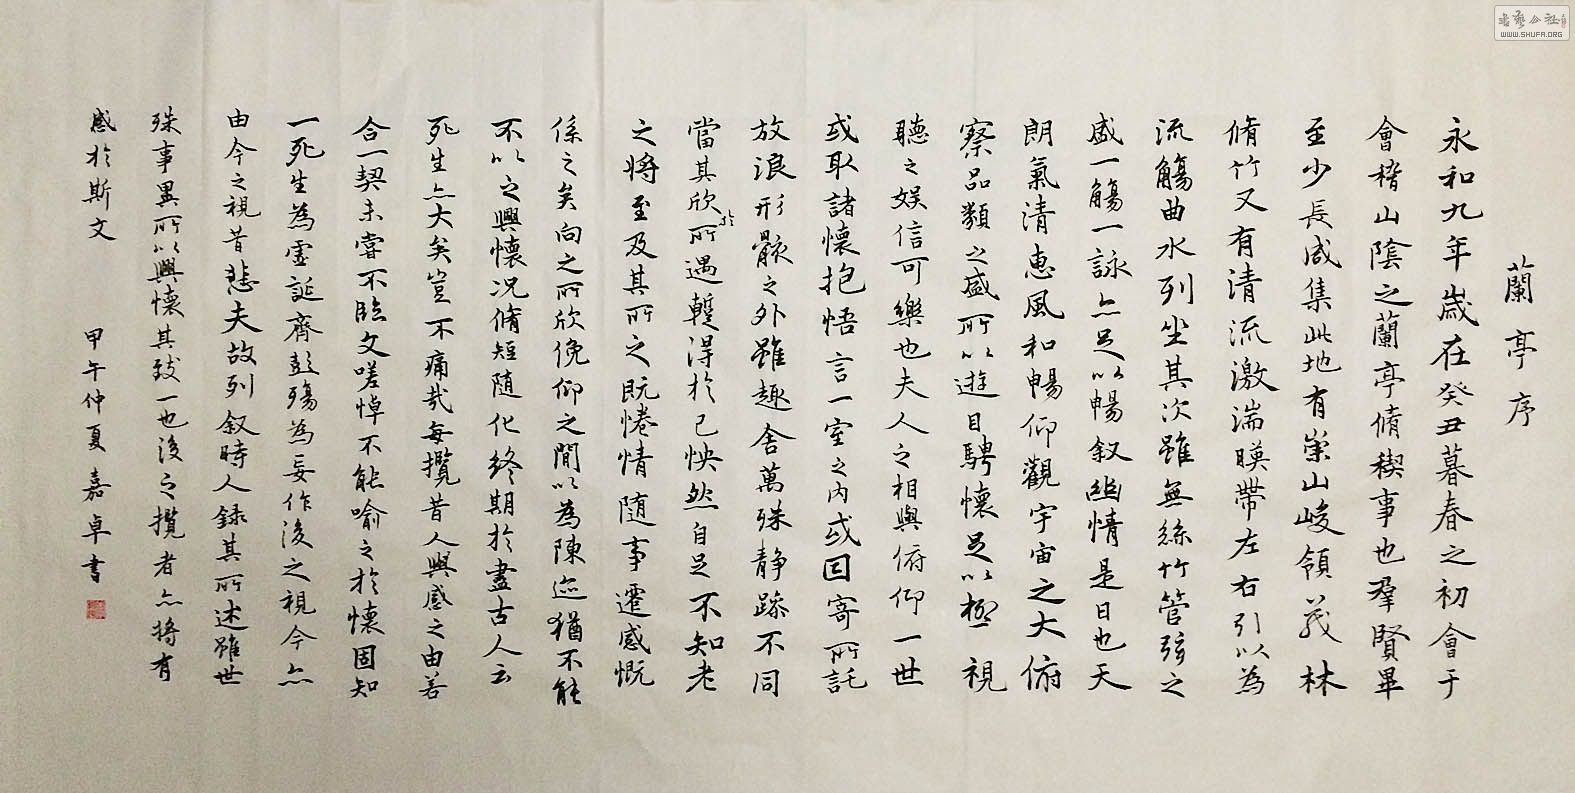 蘭亭序
永和九年歲在癸丑暮春之初會于
會稽山陰之蘭亭脩稧事也羣賢畢
至少長咸集此地有崇山峻領茂林
脩竹又有清流激湍暎帶左右引以為
流觴曲水列坐其次雖無絲竹管弦之
盛一觴一詠亦足以暢叙幽情是日也天
朗氣清惠風和暢仰觀宇宙之大俯
察品類之盛所以遊目騁懷足以極視
聽之娛信可樂也夫人之相與俯仰一世
或取諸懷抱悟言一室之內或因寄所託
放浪形骸之外雖趣舍萬殊静躁不同
當其欣於所遇蹔得於己怏然自足不知老
之將至及其所之既惓情隨事遷感慨
係之矣向之所欣俛仰之閒以為陳迹猶不能
不以之興懷况脩短隨化終期於盡古人云
死生亦大矣豈不痛哉每攬昔人興感之由若
合一契未嘗不臨文嗟悼不能喻之於懷固知
一死生為虛誕齊彭殤為妄作後之視今亦
由今之視昔悲夫故列叙時人錄其所述雖世
殊事異所以興懷其致一也後之攬者亦將有
感於斯文
甲午仲夏嘉卓書
书艺公社
WWW.SHUFA.ORG